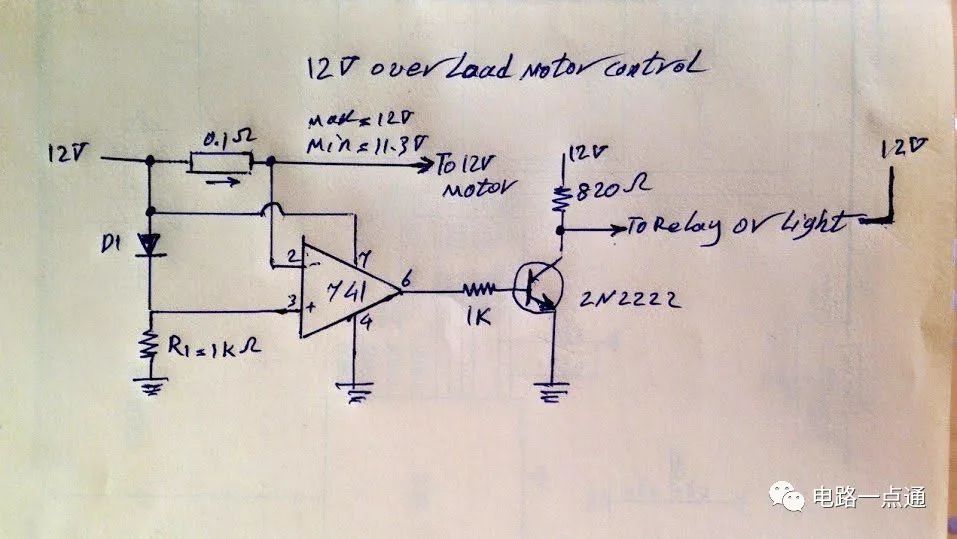 12V overLoad Motor control
12V
0.1Ω
Max=12V
Min=11.3V
To 12V
Motor
12V
820Ω
To Relay or Light
12V
D1
2
-
7
741
6
3
+
4
1K
2N2222
R1=1KΩ
电路一点通